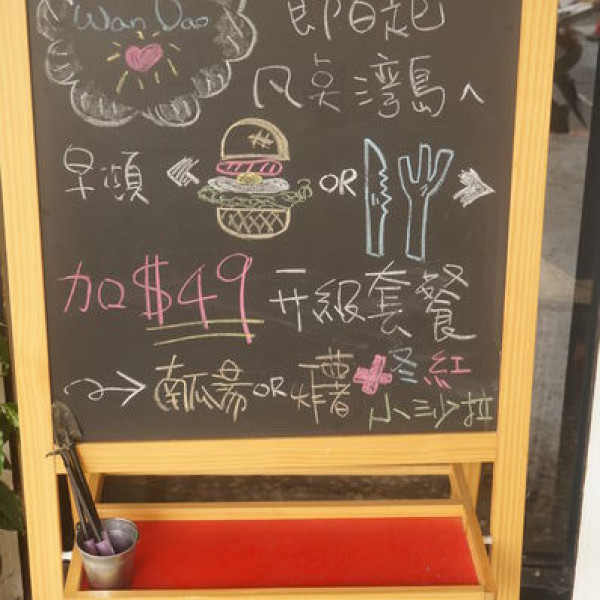 Wan Dao
即日起
凡点湾島へ
OR
加$49升級套餐
南瓜湯OR炸薯+冬紅
小沙拉